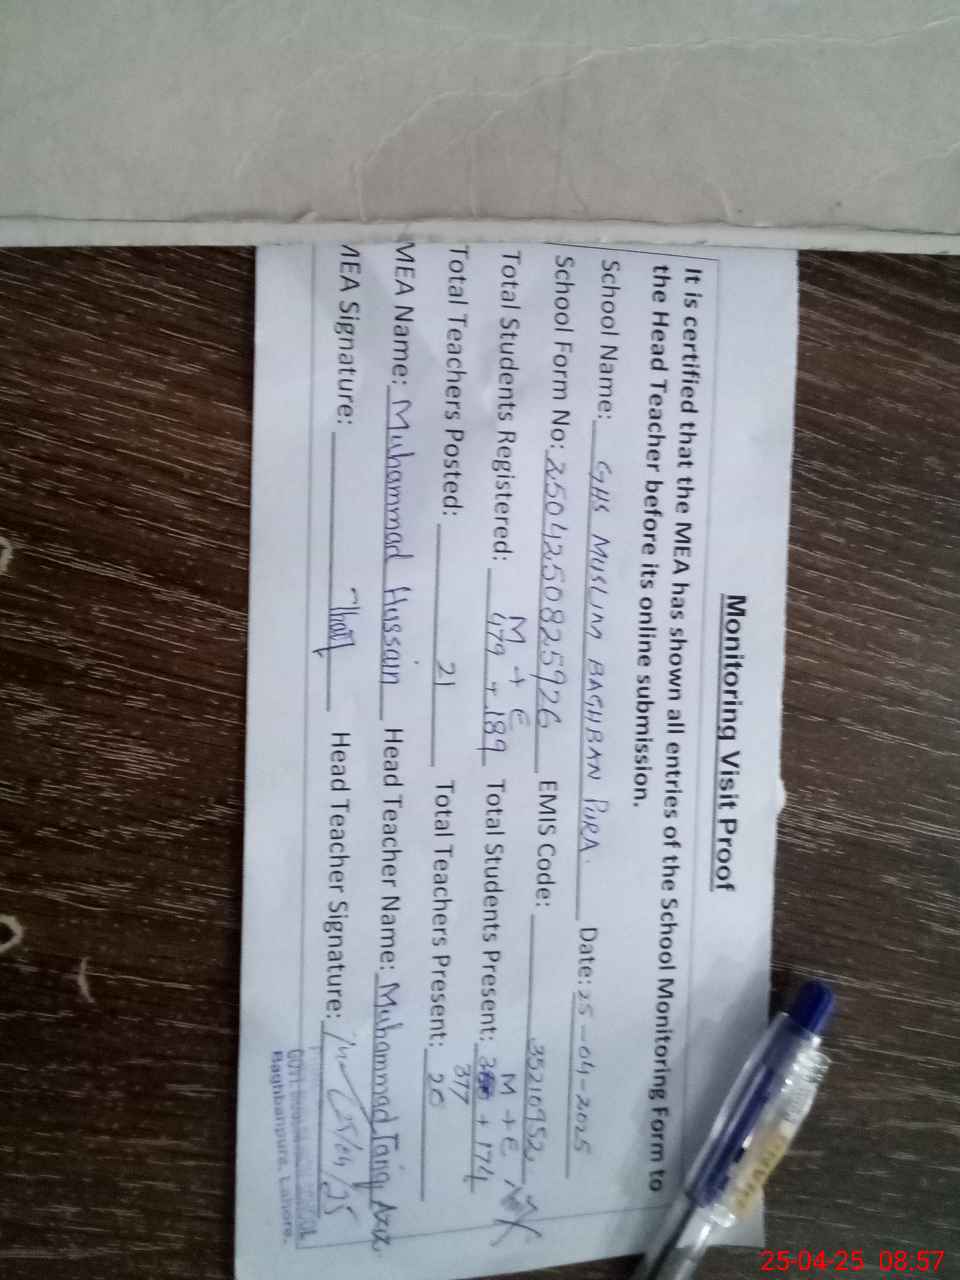 Monitoring Visit Proof
It is certified that the MEA has shown all entries of the School Monitoring Form to
the Head Teacher before its online submission.
School Name: GHS MUSLIM BAGHBAN PURA. Date: 25-04-2025
School Form No: 2504250825926 EMIS Code: 35210952
M + E M + E
Total Students Registered: 479 + 189 Total Students Present: + 174
377
Total Teachers Posted: 21 Total Teachers Present: 20
MEA Name: Muhammad Hussain Head Teacher Name: Muhammad Tariq
MEA Signature: Head Teacher Signature: 25/04/25
GOVT.
Baghbanpura, Lahore.
25-04-25 08:57